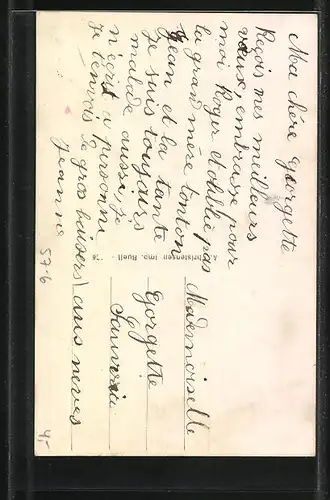 Ma chère Georgette
Reçois mes meilleurs
vœux, embrasse pour
moi Roger et oublie pas
la grand mère tonton
Jean et la tante
Je suis toujours
malade aussi, je
n'écrit a personne
Je t'envois de gros baisers aux neveux
Jeanne
Mademoiselle
Georgette
A. Christensen imp. Rueil
57.6
4,-